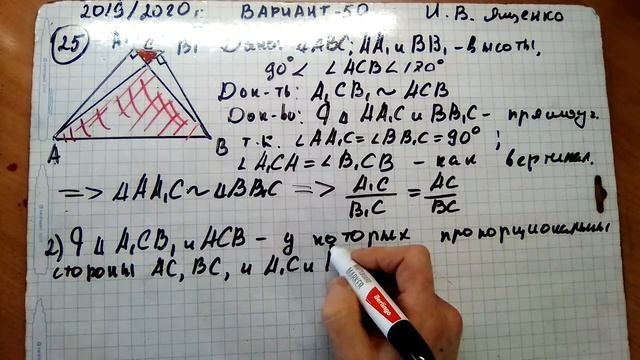 2019/2020г. ВАРИАНТ-50 И.В. Ященко
25 A₁ C B₁ Дано: ΔABC; AA₁ и BB₁ - высоты,
90°< ∠ACB<170°
Док-ть: A₁CB₁ ~ ACB
Док-во: Δ AA₁C и BB₁C - прямоуг.
т.к. ∠AA₁C=∠BB₁C=90°;
A B ∠A₁CA=∠B₁CB - как вертикал.
=> ΔAA₁C~ΔBB₁C => A₁C/B₁C = AC/BC
2) Δ A₁CB₁ и ACB - у которых пропорциональны
стороны AC, BC, и A₁C и
MARKER Berlingo